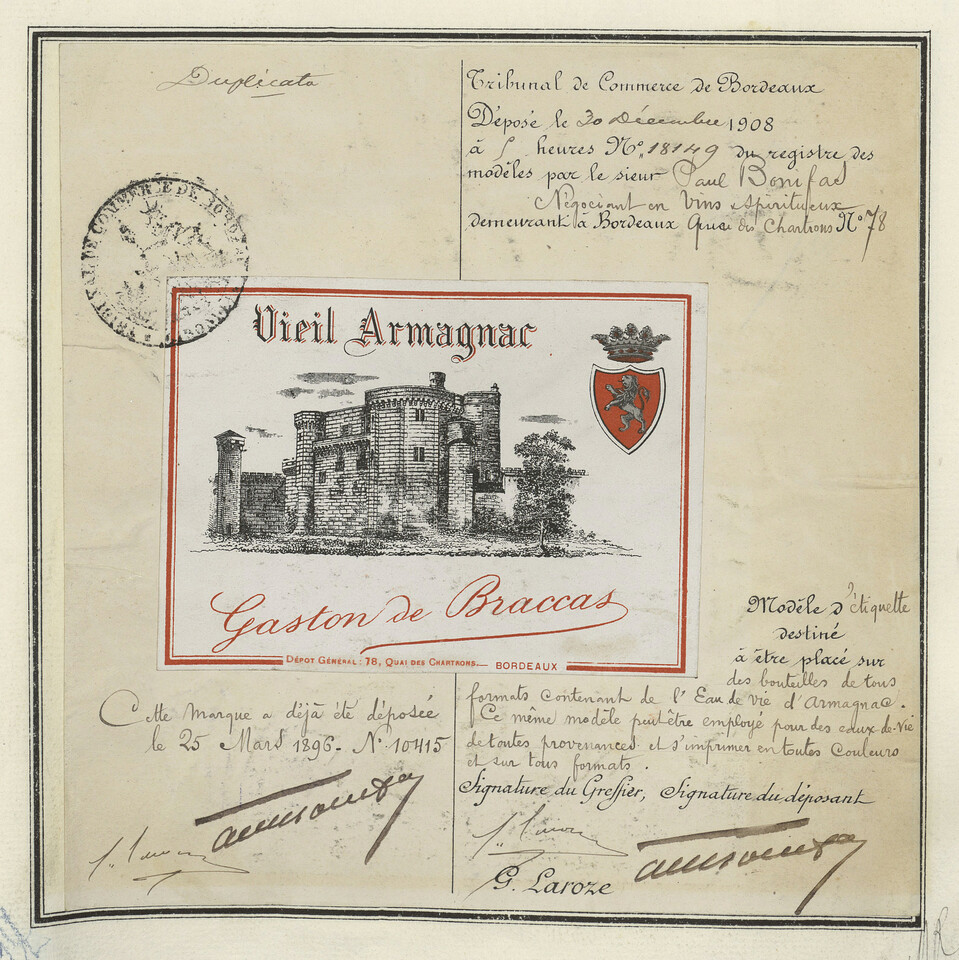 Duplicata
Tribunal de Commerce de Bordeaux
Déposé le 30 Décembre 1908
à 5 heures No. 18149 du registre des
modèles par le sieur Paul Bonifas
Négociant en Vins & Spiritueux
demeurant à Bordeaux Quai des Chartrons No 78
TRIBUNAL DE COMMERCE DE BORDEAUX
Vieil Armagnac
Gaston de Braccas
DÉPOT GÉNÉRAL : 78, QUAI DES CHARTRONS._ BORDEAUX
Modèle d'étiquette
destiné
à être placé sur
des bouteilles de tous
formats contenant de l'Eau de vie d'Armagnac.
Ce même modèle peut être employé pour des eaux-de-vie
de toutes provenances et s'imprimer en toutes Couleurs
et sur tous formats.
Cette Marque a déjà été déposée
le 25 Mars 1896 - No 10415
Signature du Greffier, Signature du déposant
G. Laroze